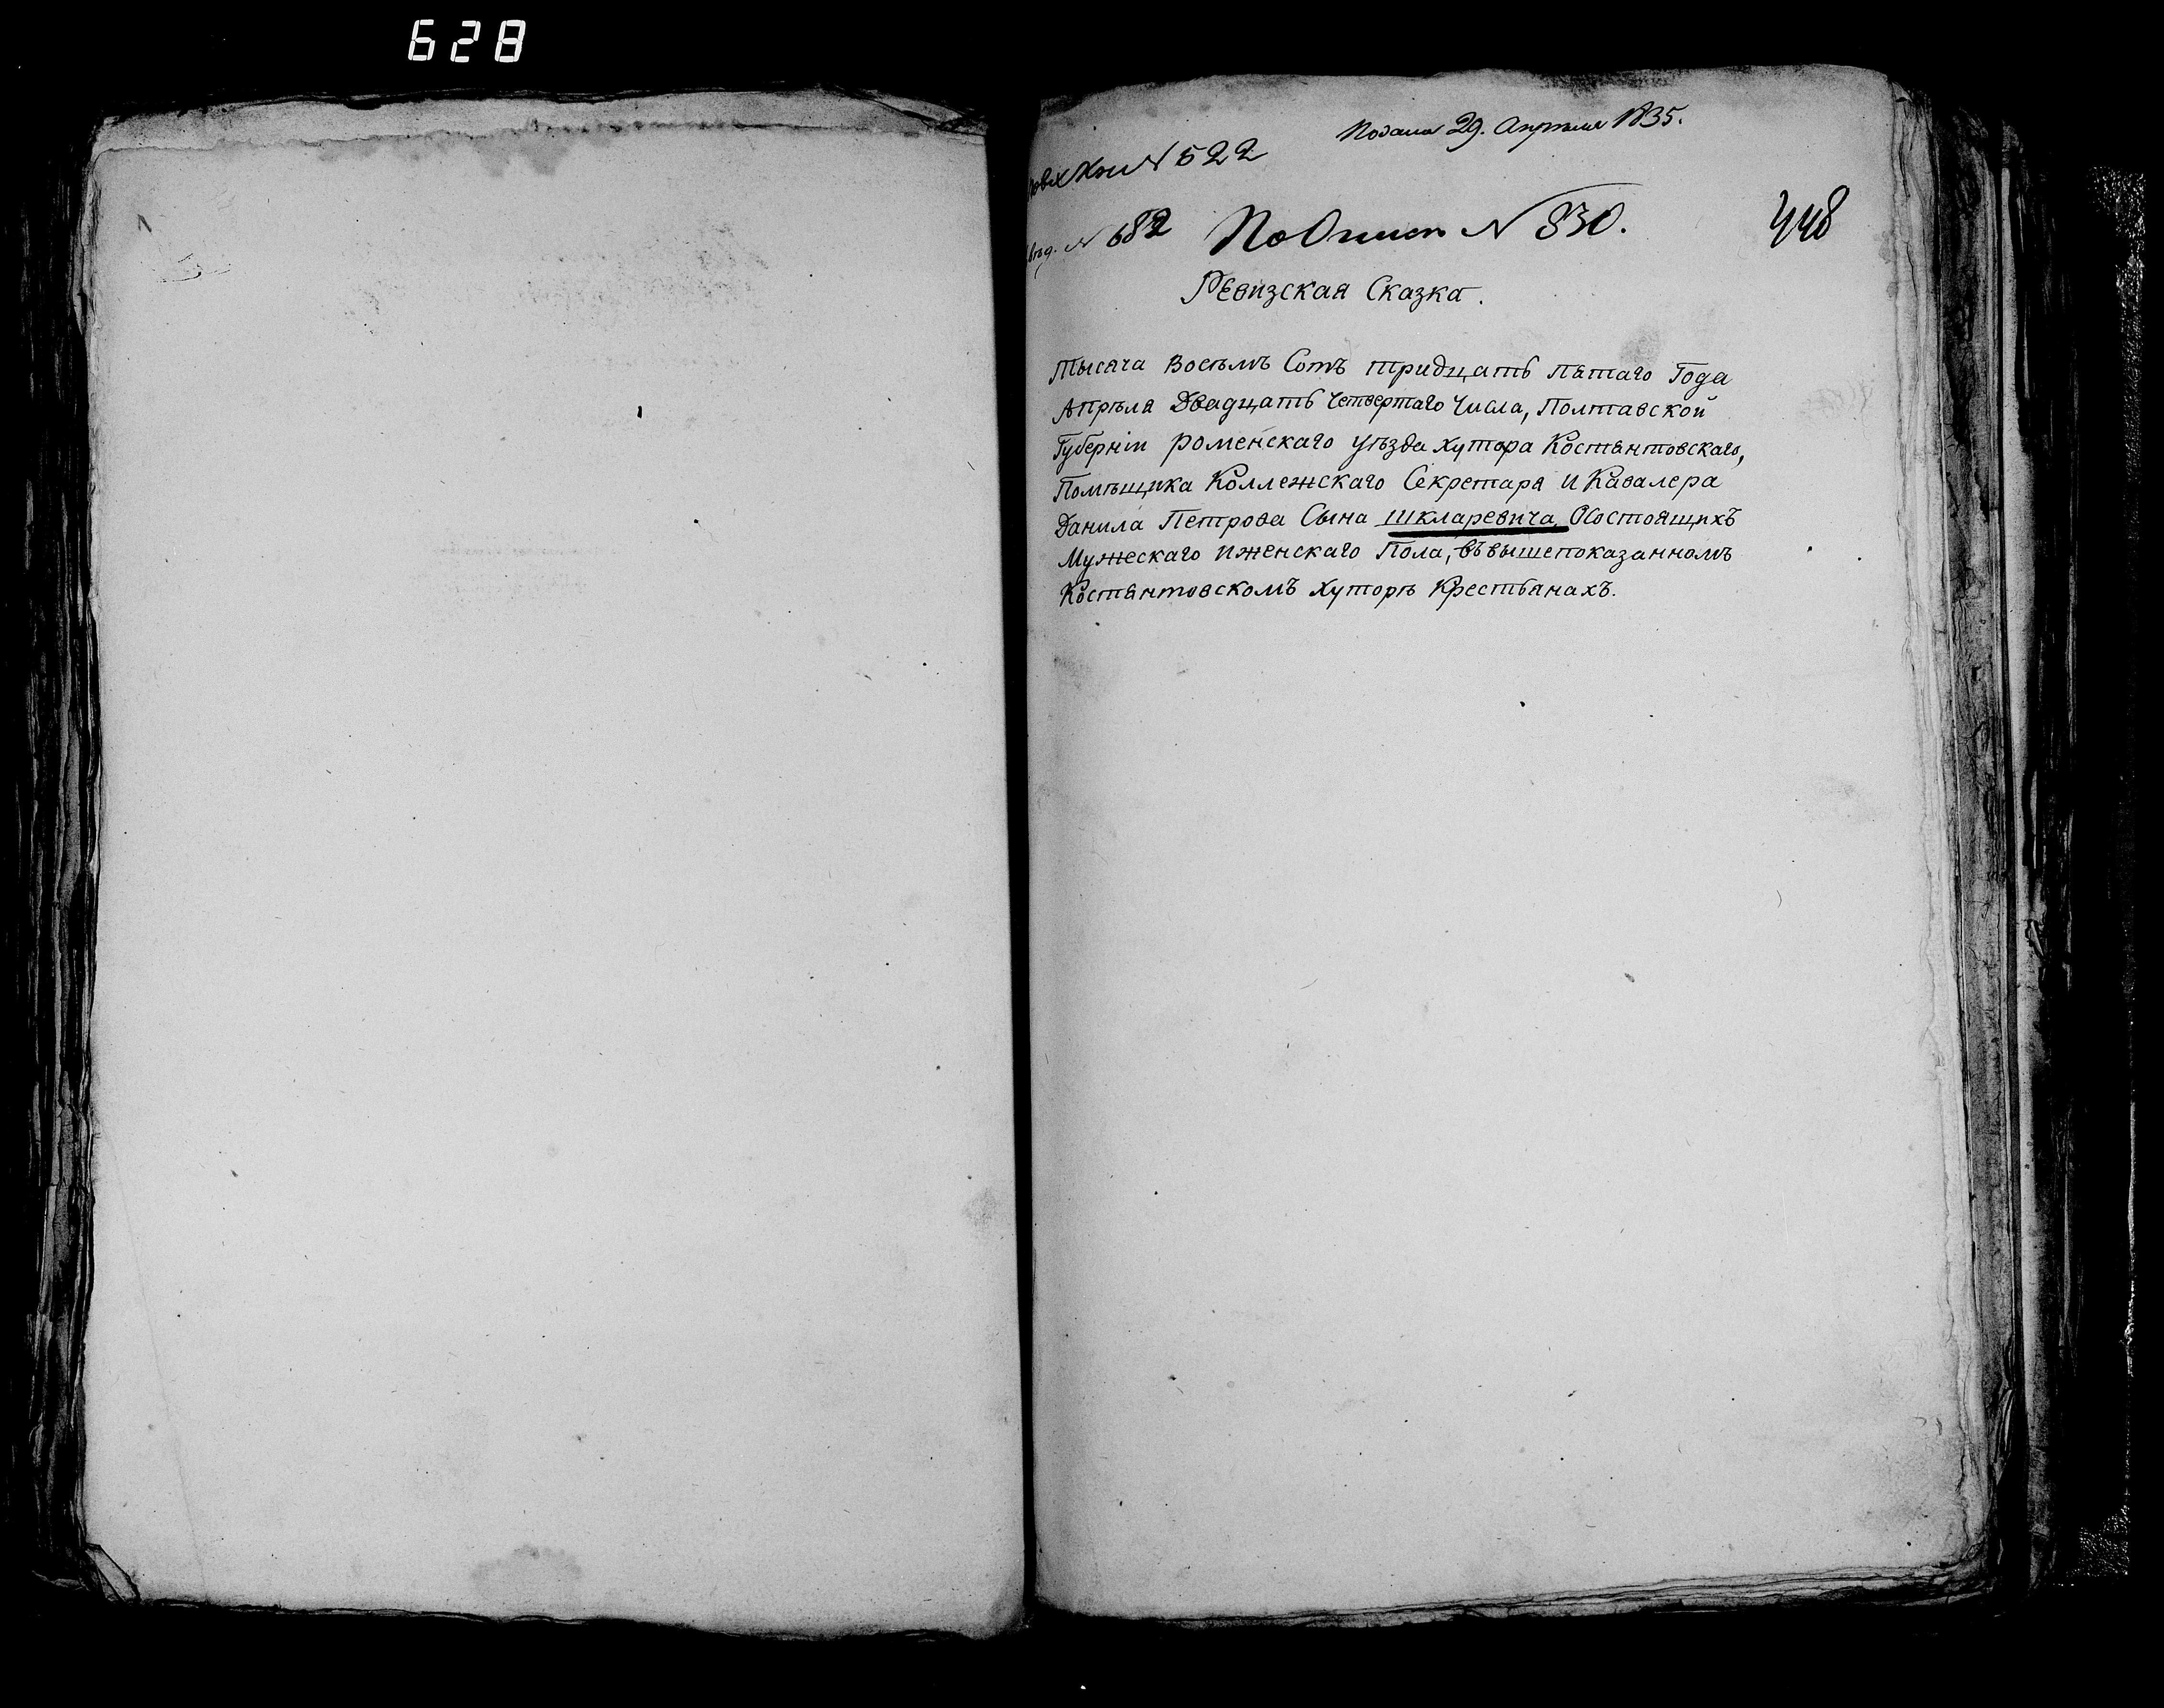 628
Подана 29. Апреля 1835.
Кни № 522
№ 682 По Описи № 830. 448
Ревизская Сказка.
Тысяча Восемъ Сотъ тридцать пятаго Года
Апреля Двадцать Четвертаго Числа, Полтавской
Губерніи роменскаго уѣзда хутора Костянтовскаго,
Помѣщика Коллежскаго Секретаря и Кавалера
Данила Петрова Сына Шкларевича, О состоящихъ
Мужескаго и женскаго Пола, въ вышепоказанномъ
Костянтовскомъ хуторѣ Крестьянахъ.